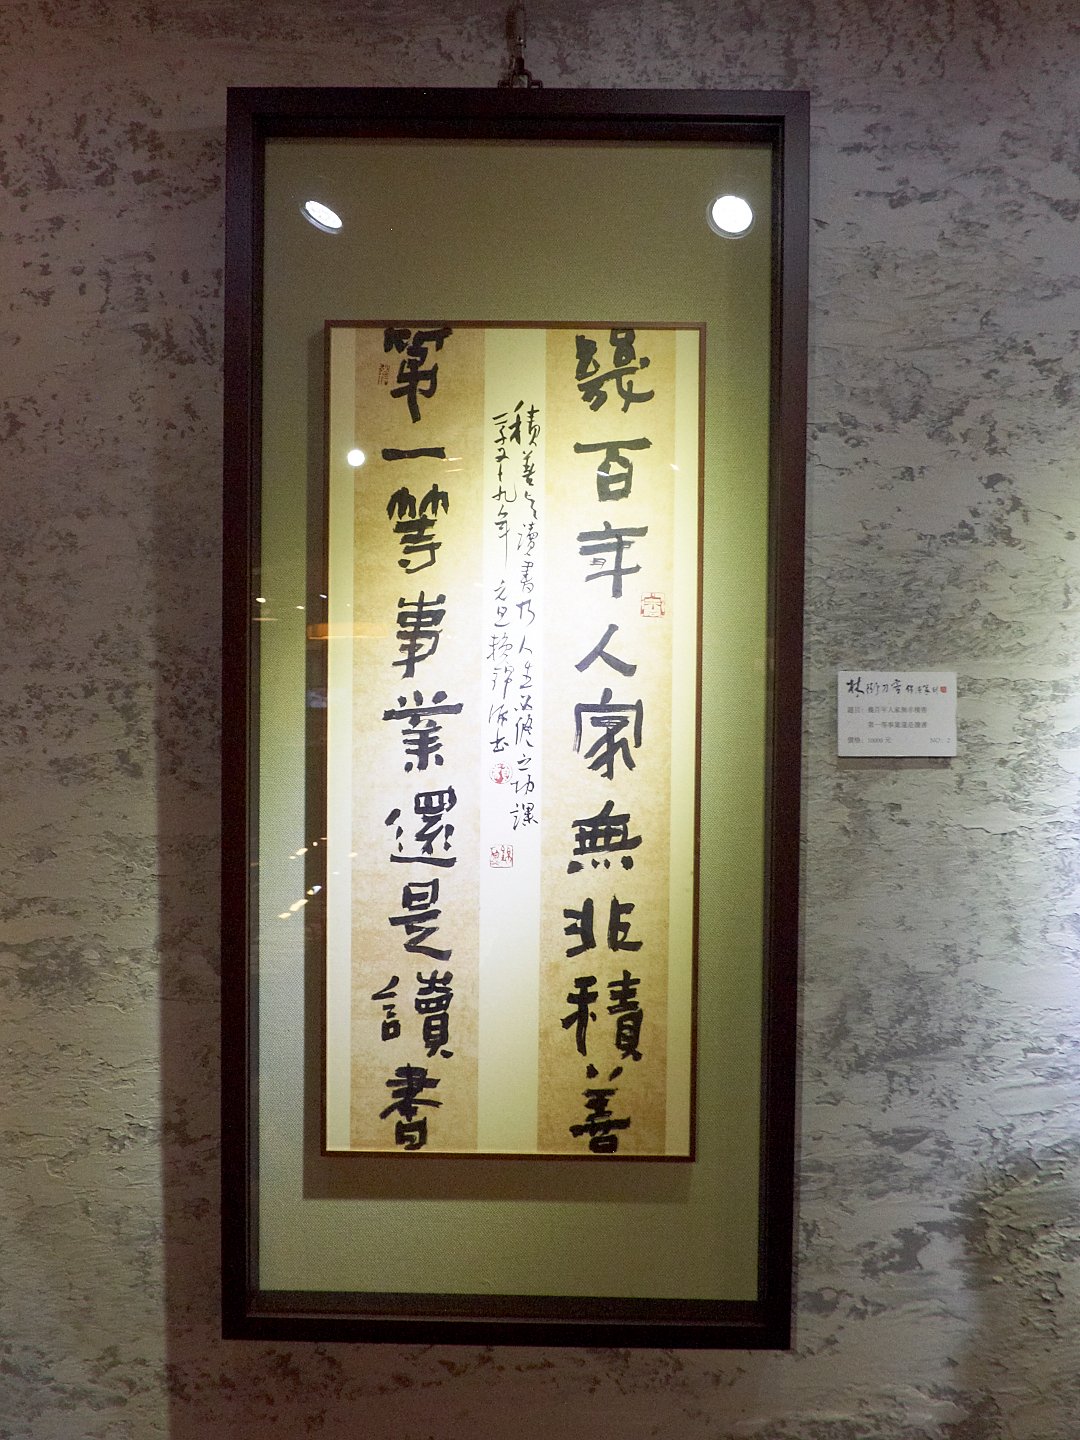 幾百年人家無非積善
積善與讀書乃人生必修之功課
第一等事業還是讀書
題目：幾百年人家無非積善
第一等事業還是讀書
價格：10000 元
NO：2